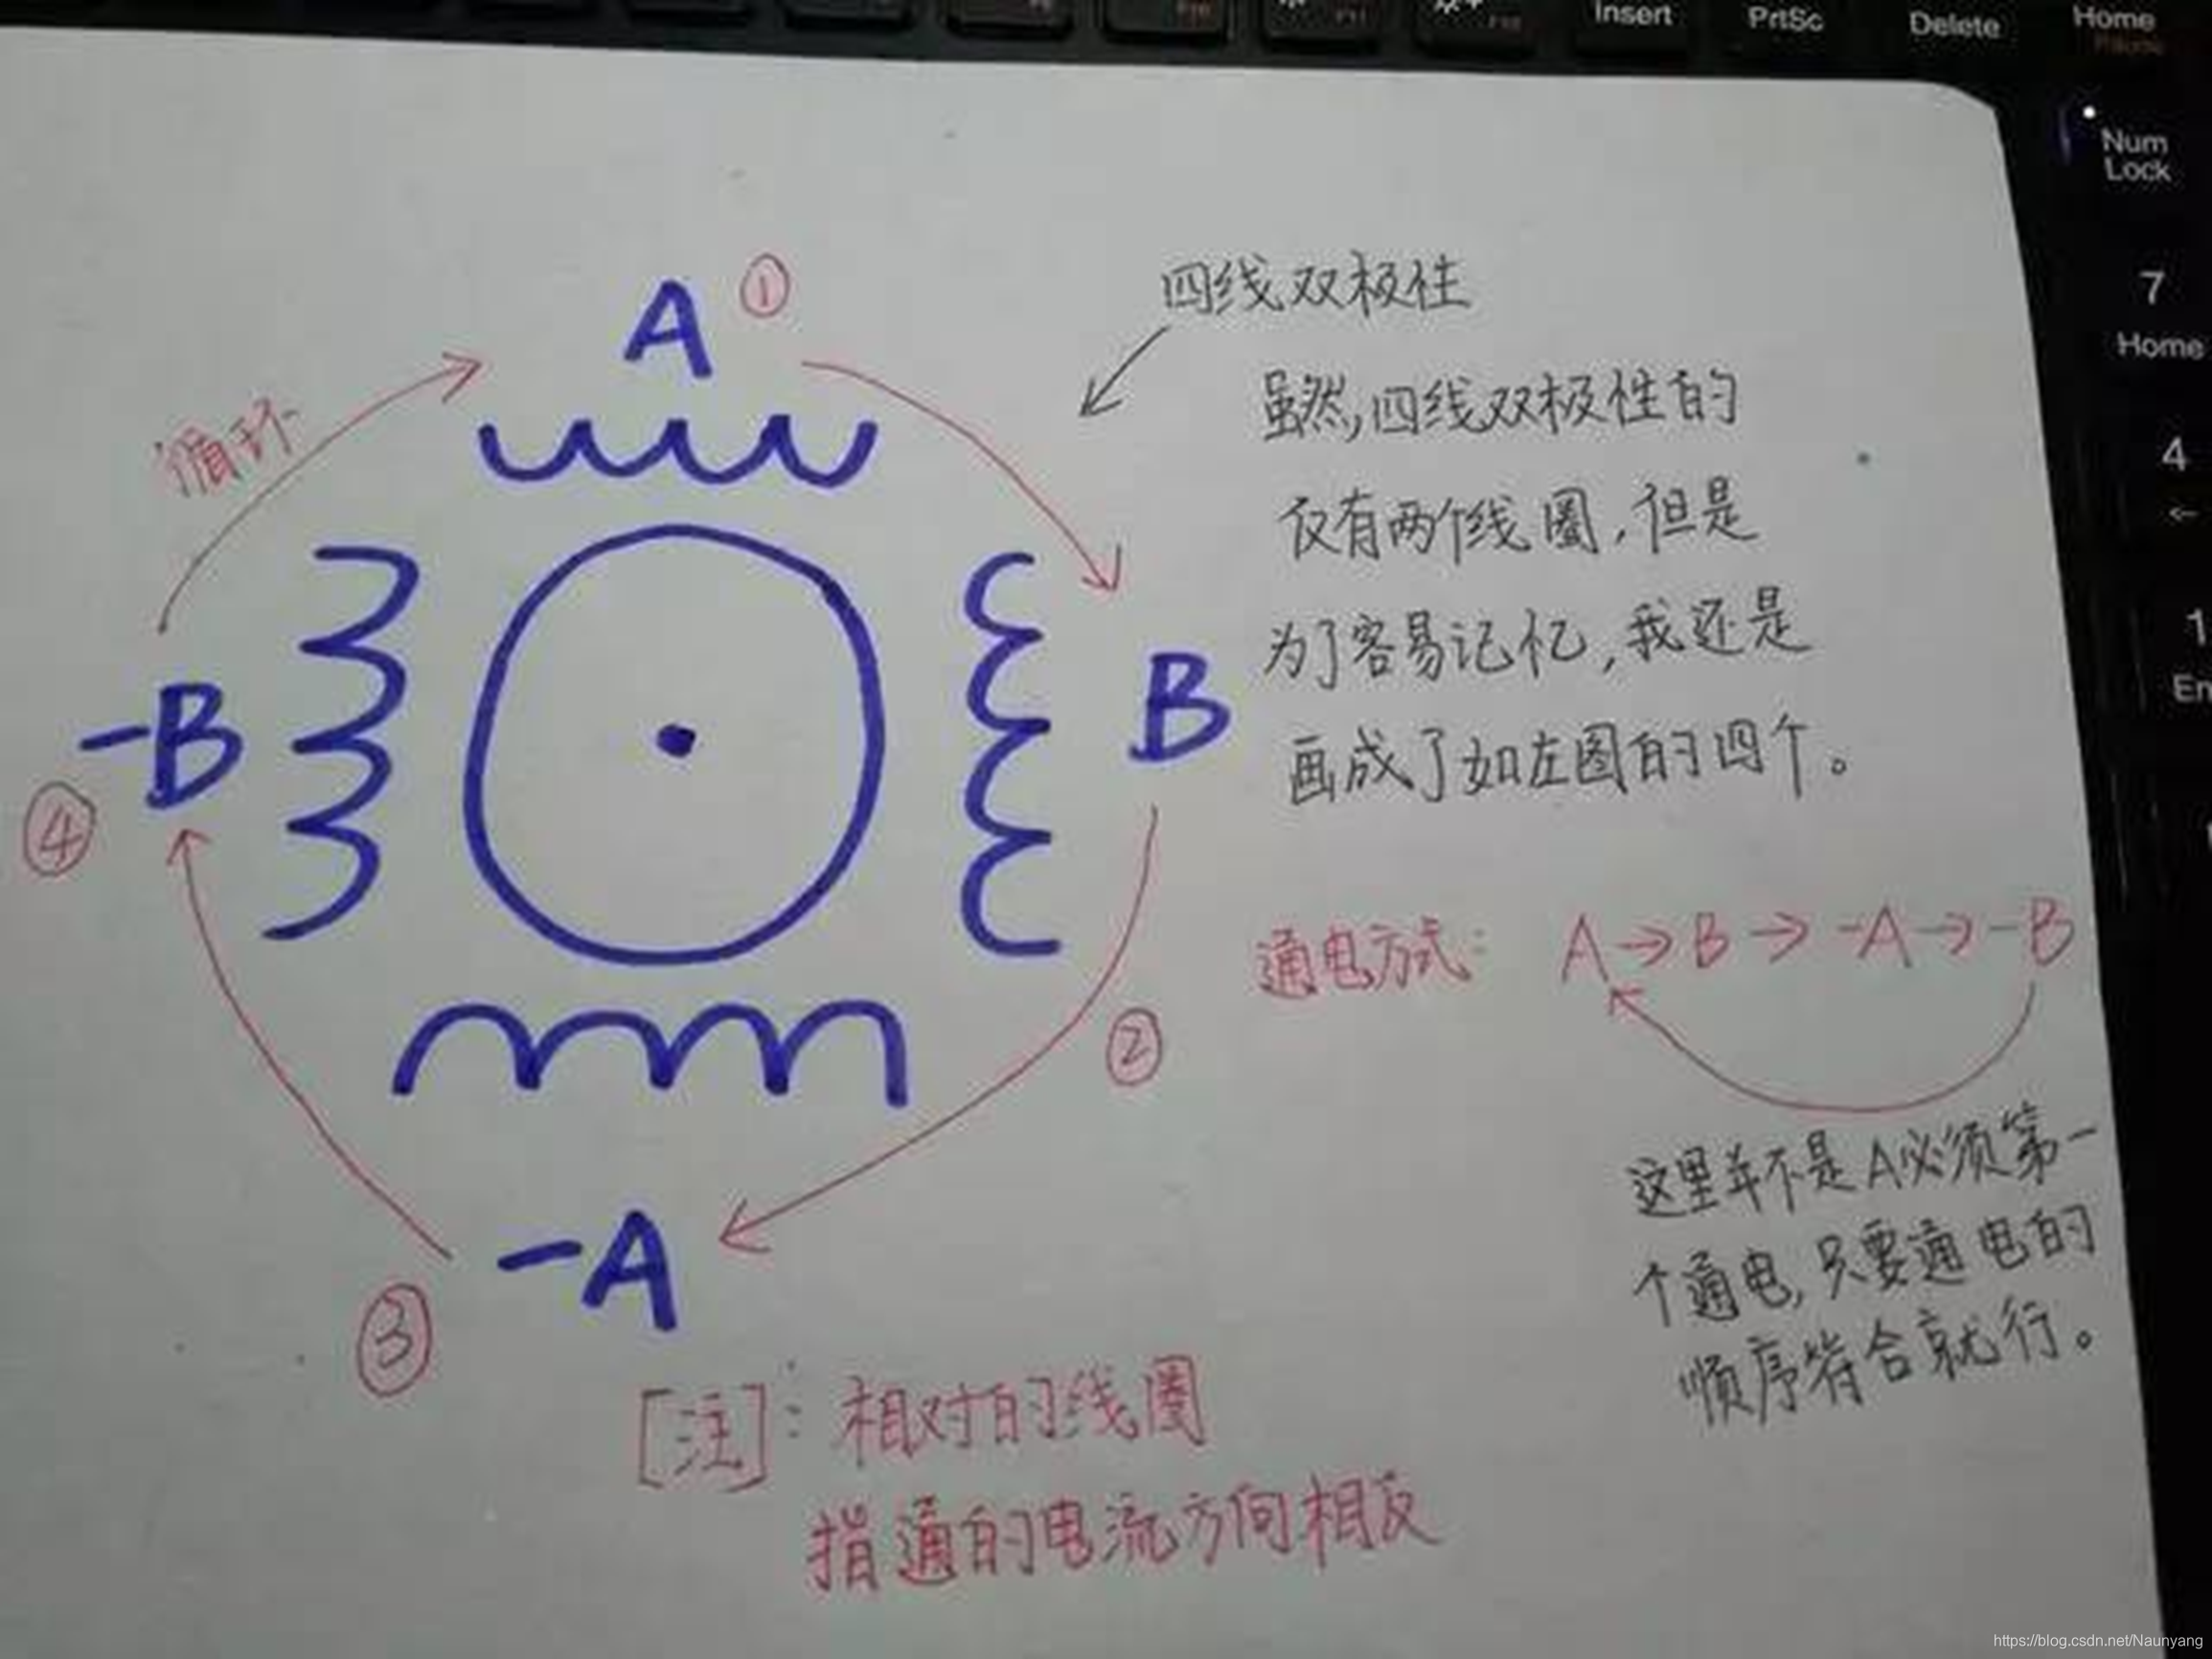 Insert
PrtSc
Delete
Home
Num
Lock
7
Home
4
←
1
A ①
循环
B
-B
④
②
-A
③
四线双极性
虽然,四线双极性的
仅有两个线圈,但是
为了容易记忆,我还是
画成了如左图的四个。
通电方式: A→B→-A→-B
这里并不是A必须第一
个通电,只要通电的
顺序符合就行。
[注]: 相对的线圈
指通的电流方向相反
https://blog.csdn.net/Naunyang